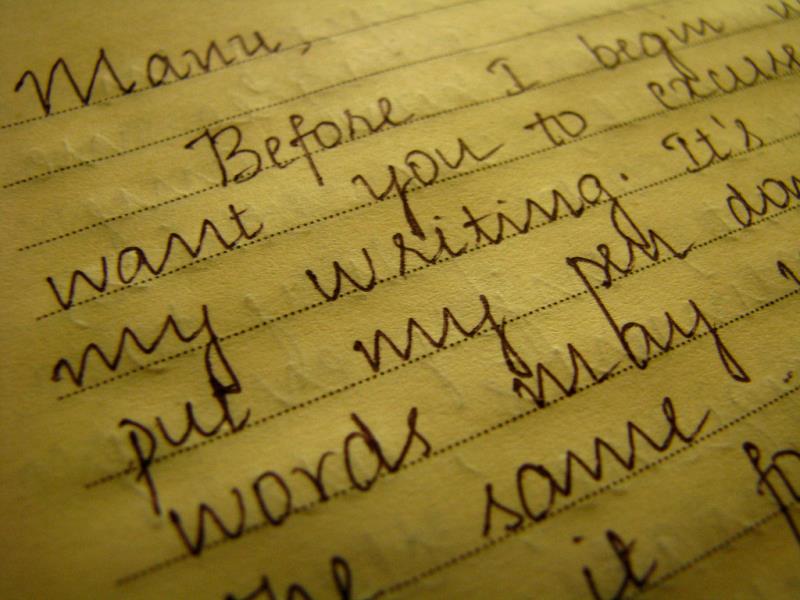 Manu,
Before I begin
want you to excuse
my writing. It's
put my pen down
words may
same
it